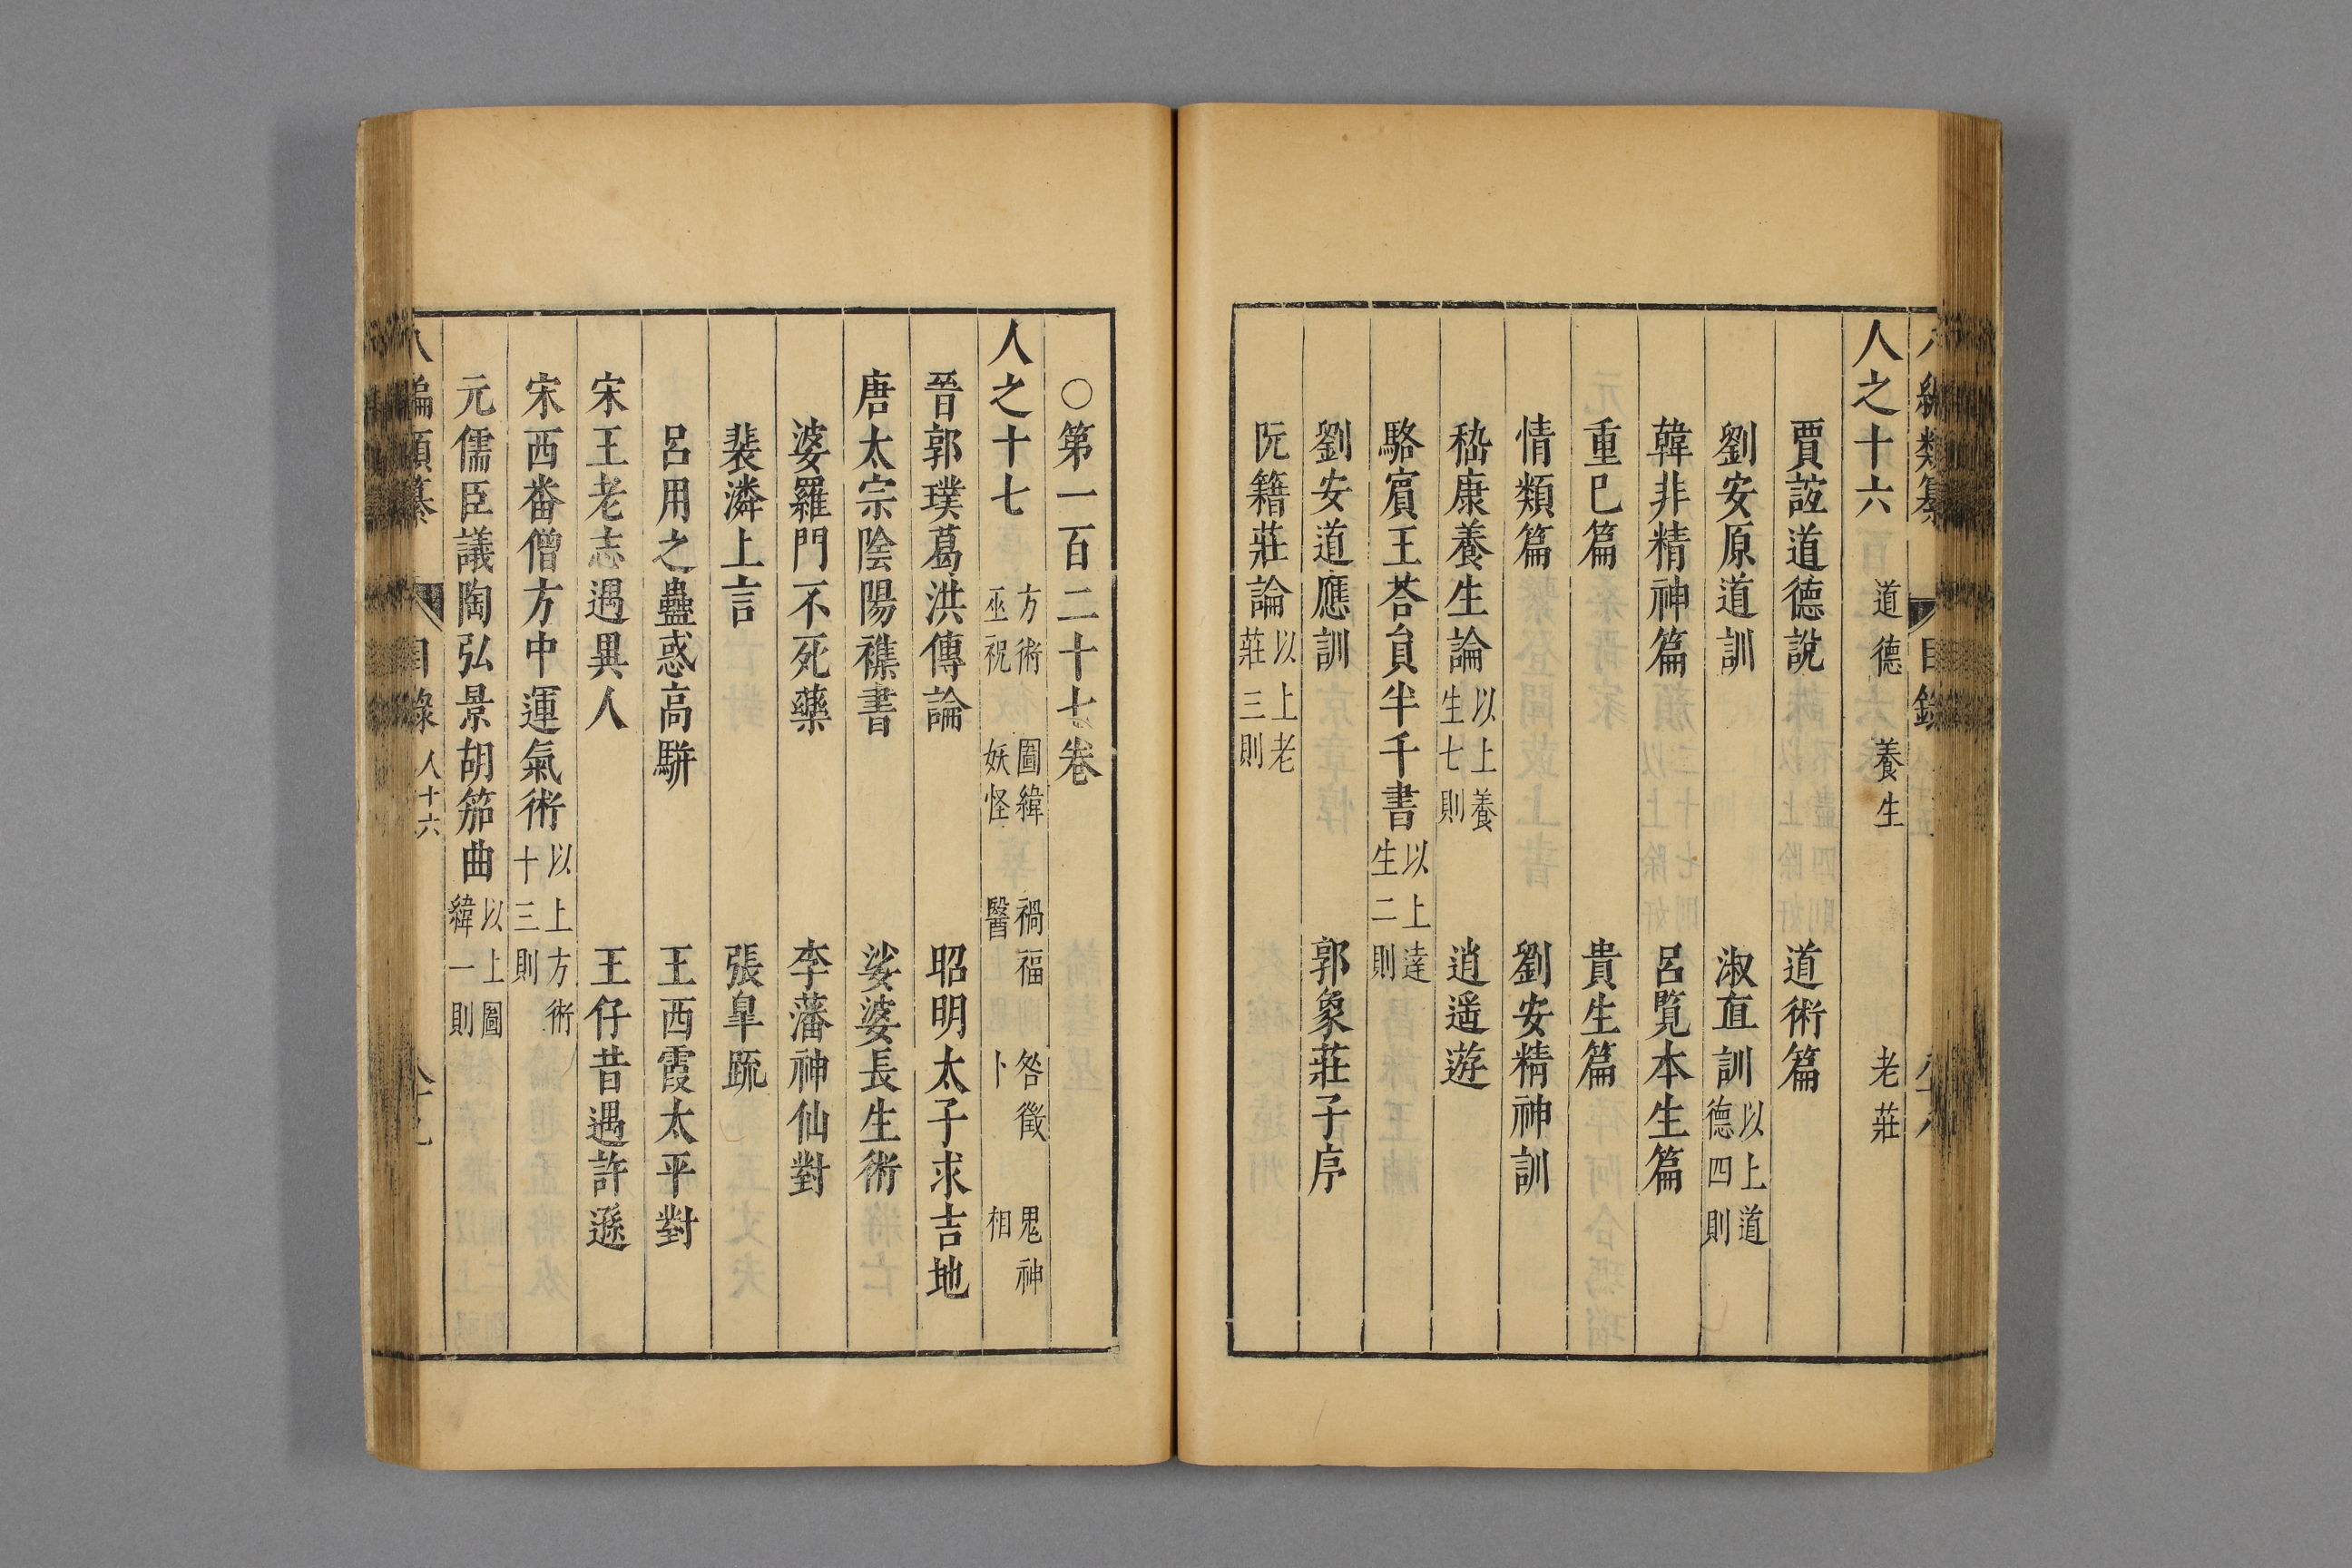 編類纂 目錄
人之十六 道德 養生 老莊
賈誼道德說 道術篇
劉安原道訓 淑直訓 以上道德四則
韓非精神篇 呂覽本生篇
重己篇 貴生篇
情類篇 劉安精神訓
嵇康養生論 以上養生七則 逍遥遊
駱賔王荅負半千書 以上達生二則
劉安道應訓 郭象莊子序
阮籍莊論 以上老莊三則
○第一百二十七卷
人之十七 方術 巫祝 圖緯 妖怪 禍福 醫 咎徵 卜 鬼神 相
晉郭璞葛洪傳論 昭明太子求吉地
唐太宗陰陽襍書 娑婆長生術
婆羅門不死藥 李藩神仙對
裴潾上言 張臯䟽
呂用之蠱惑高駢 王西霞太平對
宋王老志遇異人 王仔昔遇許遜
宋西番僧方中運氣術 以上方術十三則
元儒臣議陶弘景胡笳曲 以上圖緯一則
編類纂 目錄 人十六